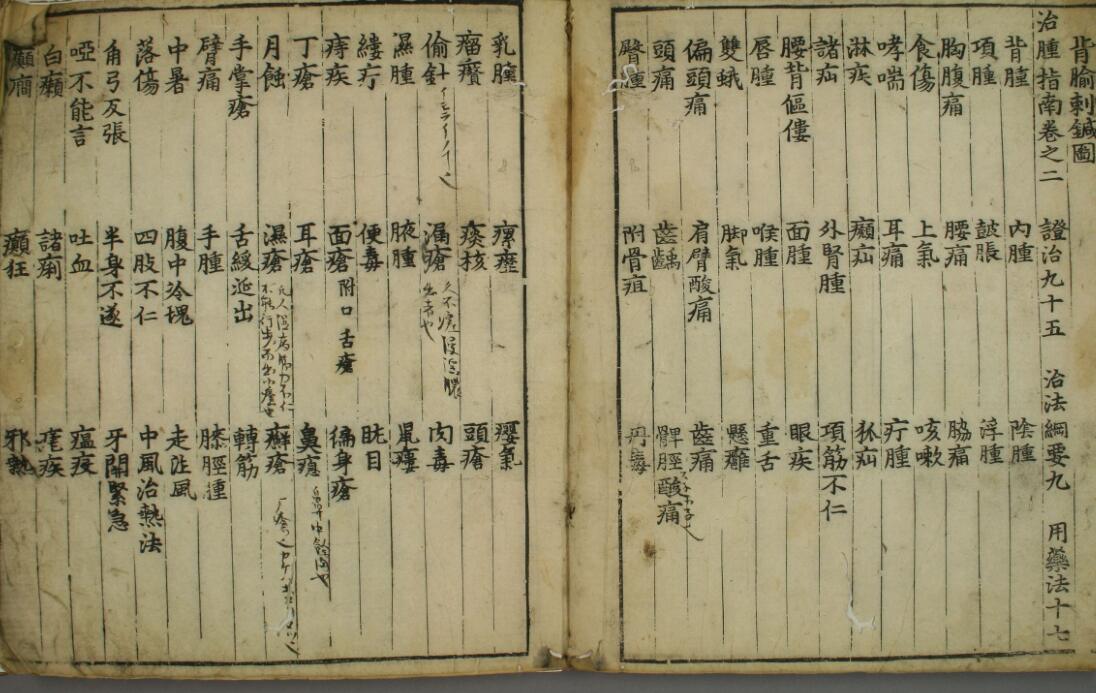 背腧刺鍼圖
治腫指南卷之二 證治九十五 治法綱要九 用藥法十七
背腫 內腫 陰腫
項腫 皷脹 浮腫
胸腹痛 腰痛 脇痛
食傷 上氣 咳嗽
哮喘 耳痛 疔腫
淋疾 㿗疝 狐疝
諸疝 外腎腫 項筋不仁
腰背傴僂 面腫 眼疾
唇腫 喉腫 重舌
雙蛾 脚氣 懸癰
偏頭痛 肩臂酸痛 齒痛
頭痛 齒齲 髀脛酸痛
臀腫 附骨疽 丹毒
乳腫 瘰癧 癭氣
瘤贅 痰核 頭瘡
偷針 漏瘡 肉毒
濕腫 腋腫 鼠瘻
縷疔 便毒 眈目
痔疾 面瘡附口舌瘡 徧身瘡
丁瘡 耳瘡 鼻瘡
月蝕 濕瘡 癬瘡
手掌瘡 舌緩涎出 轉筋
臂痛 手腫 膝脛腫
中暑 腹中冷塊 走注風
落傷 四肢不仁 中風治熱法
角弓反張 半身不遂 牙關緊急
啞不能言 吐血 瘟疫
白癩 諸痢 疾
癲癎 癲狂 邪熱